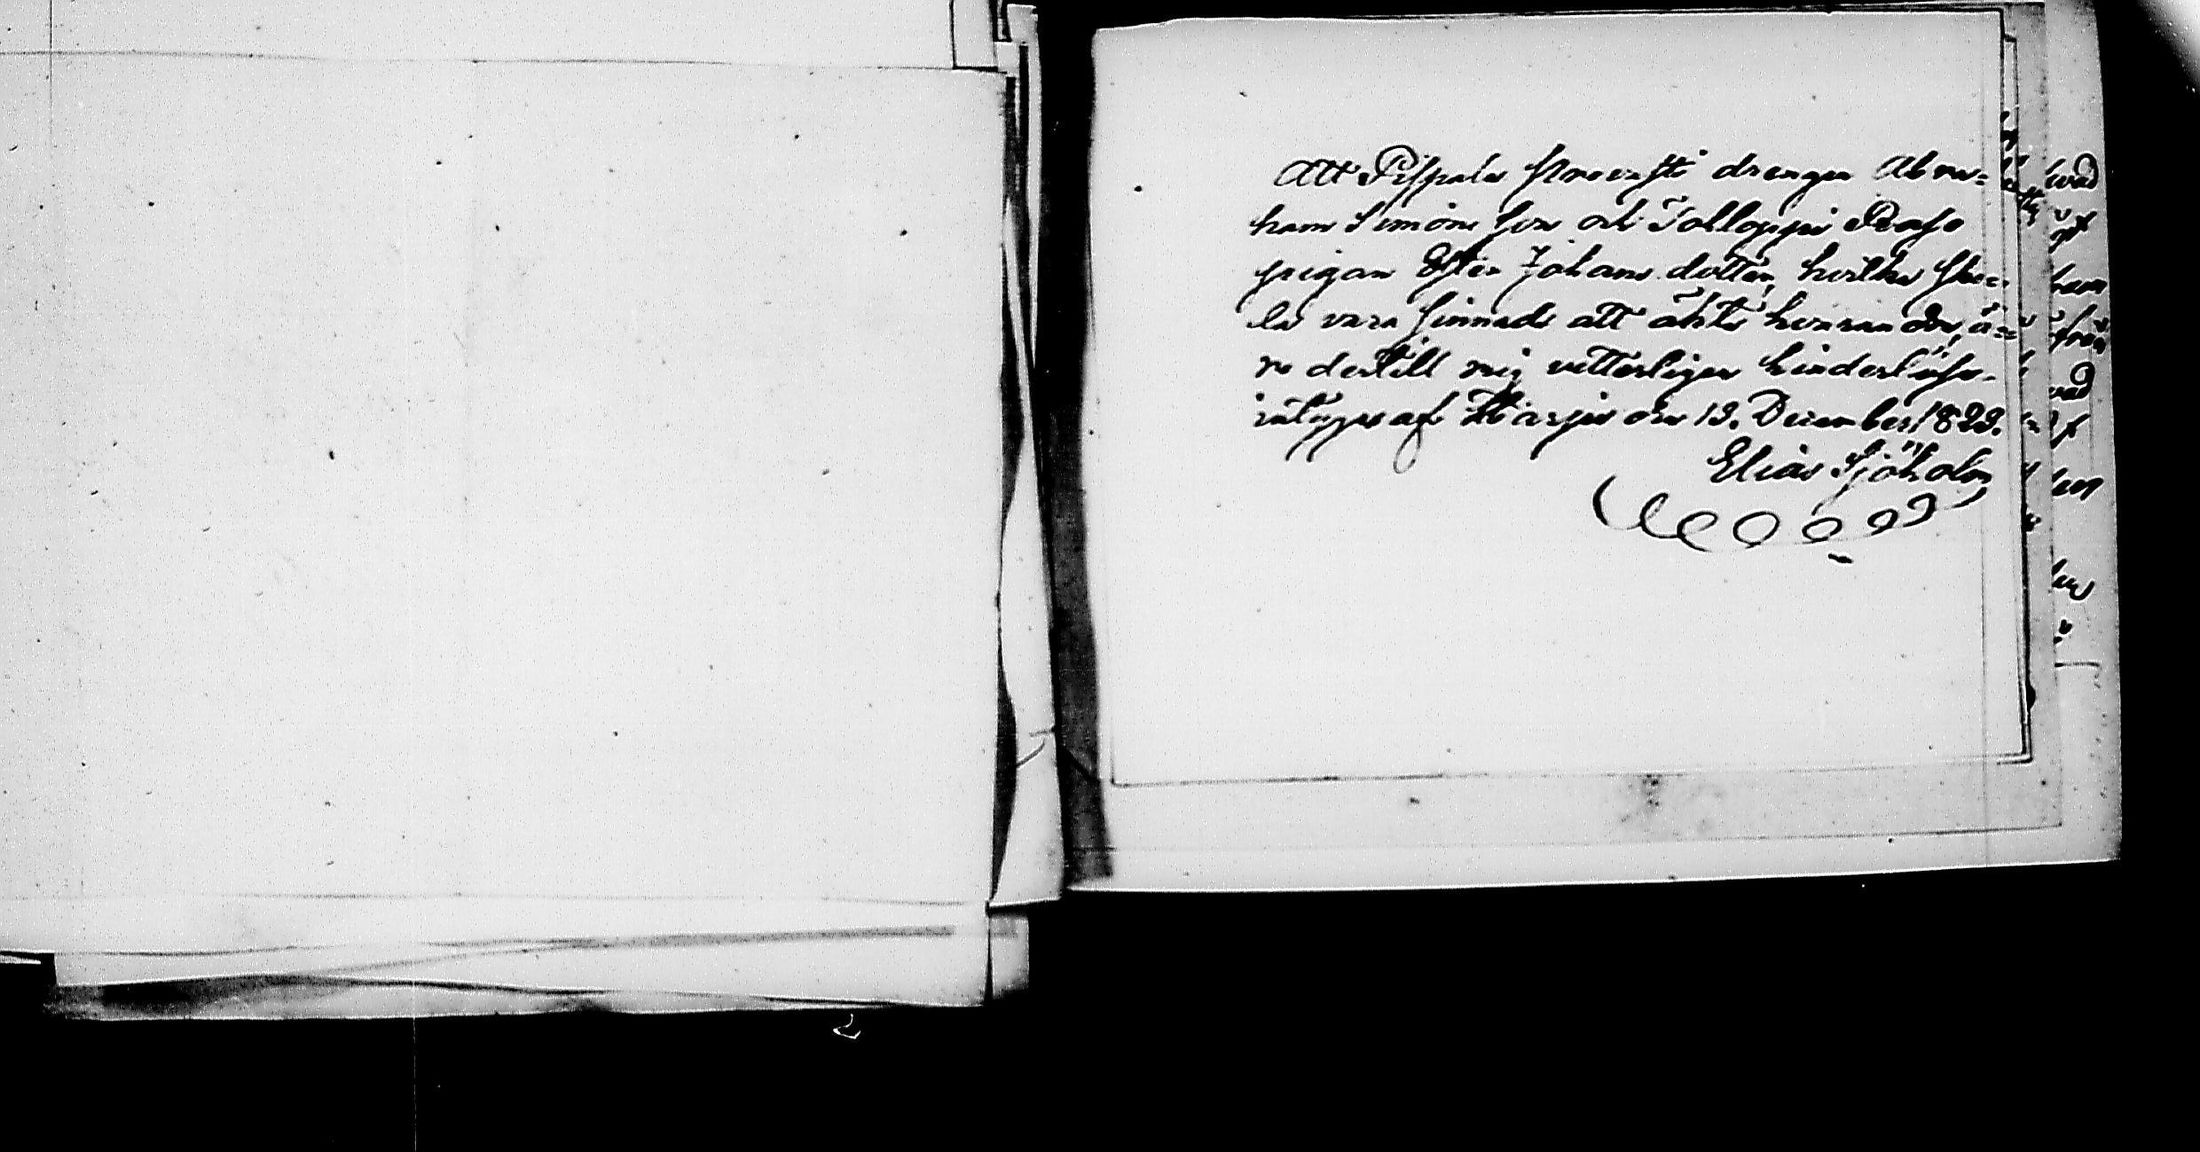 Att Pispala Knovasti drengen Abra=
ham Simons son och Tolloppi Paaso
pigan Ester Johans dotter, hvilka sko=
la vara sinnade att äkta hvarandra, ä=
ro dertill mig vitterligen hinderlöse.
intygas af Harju den 13. December 1829.
Elias Sjöholm